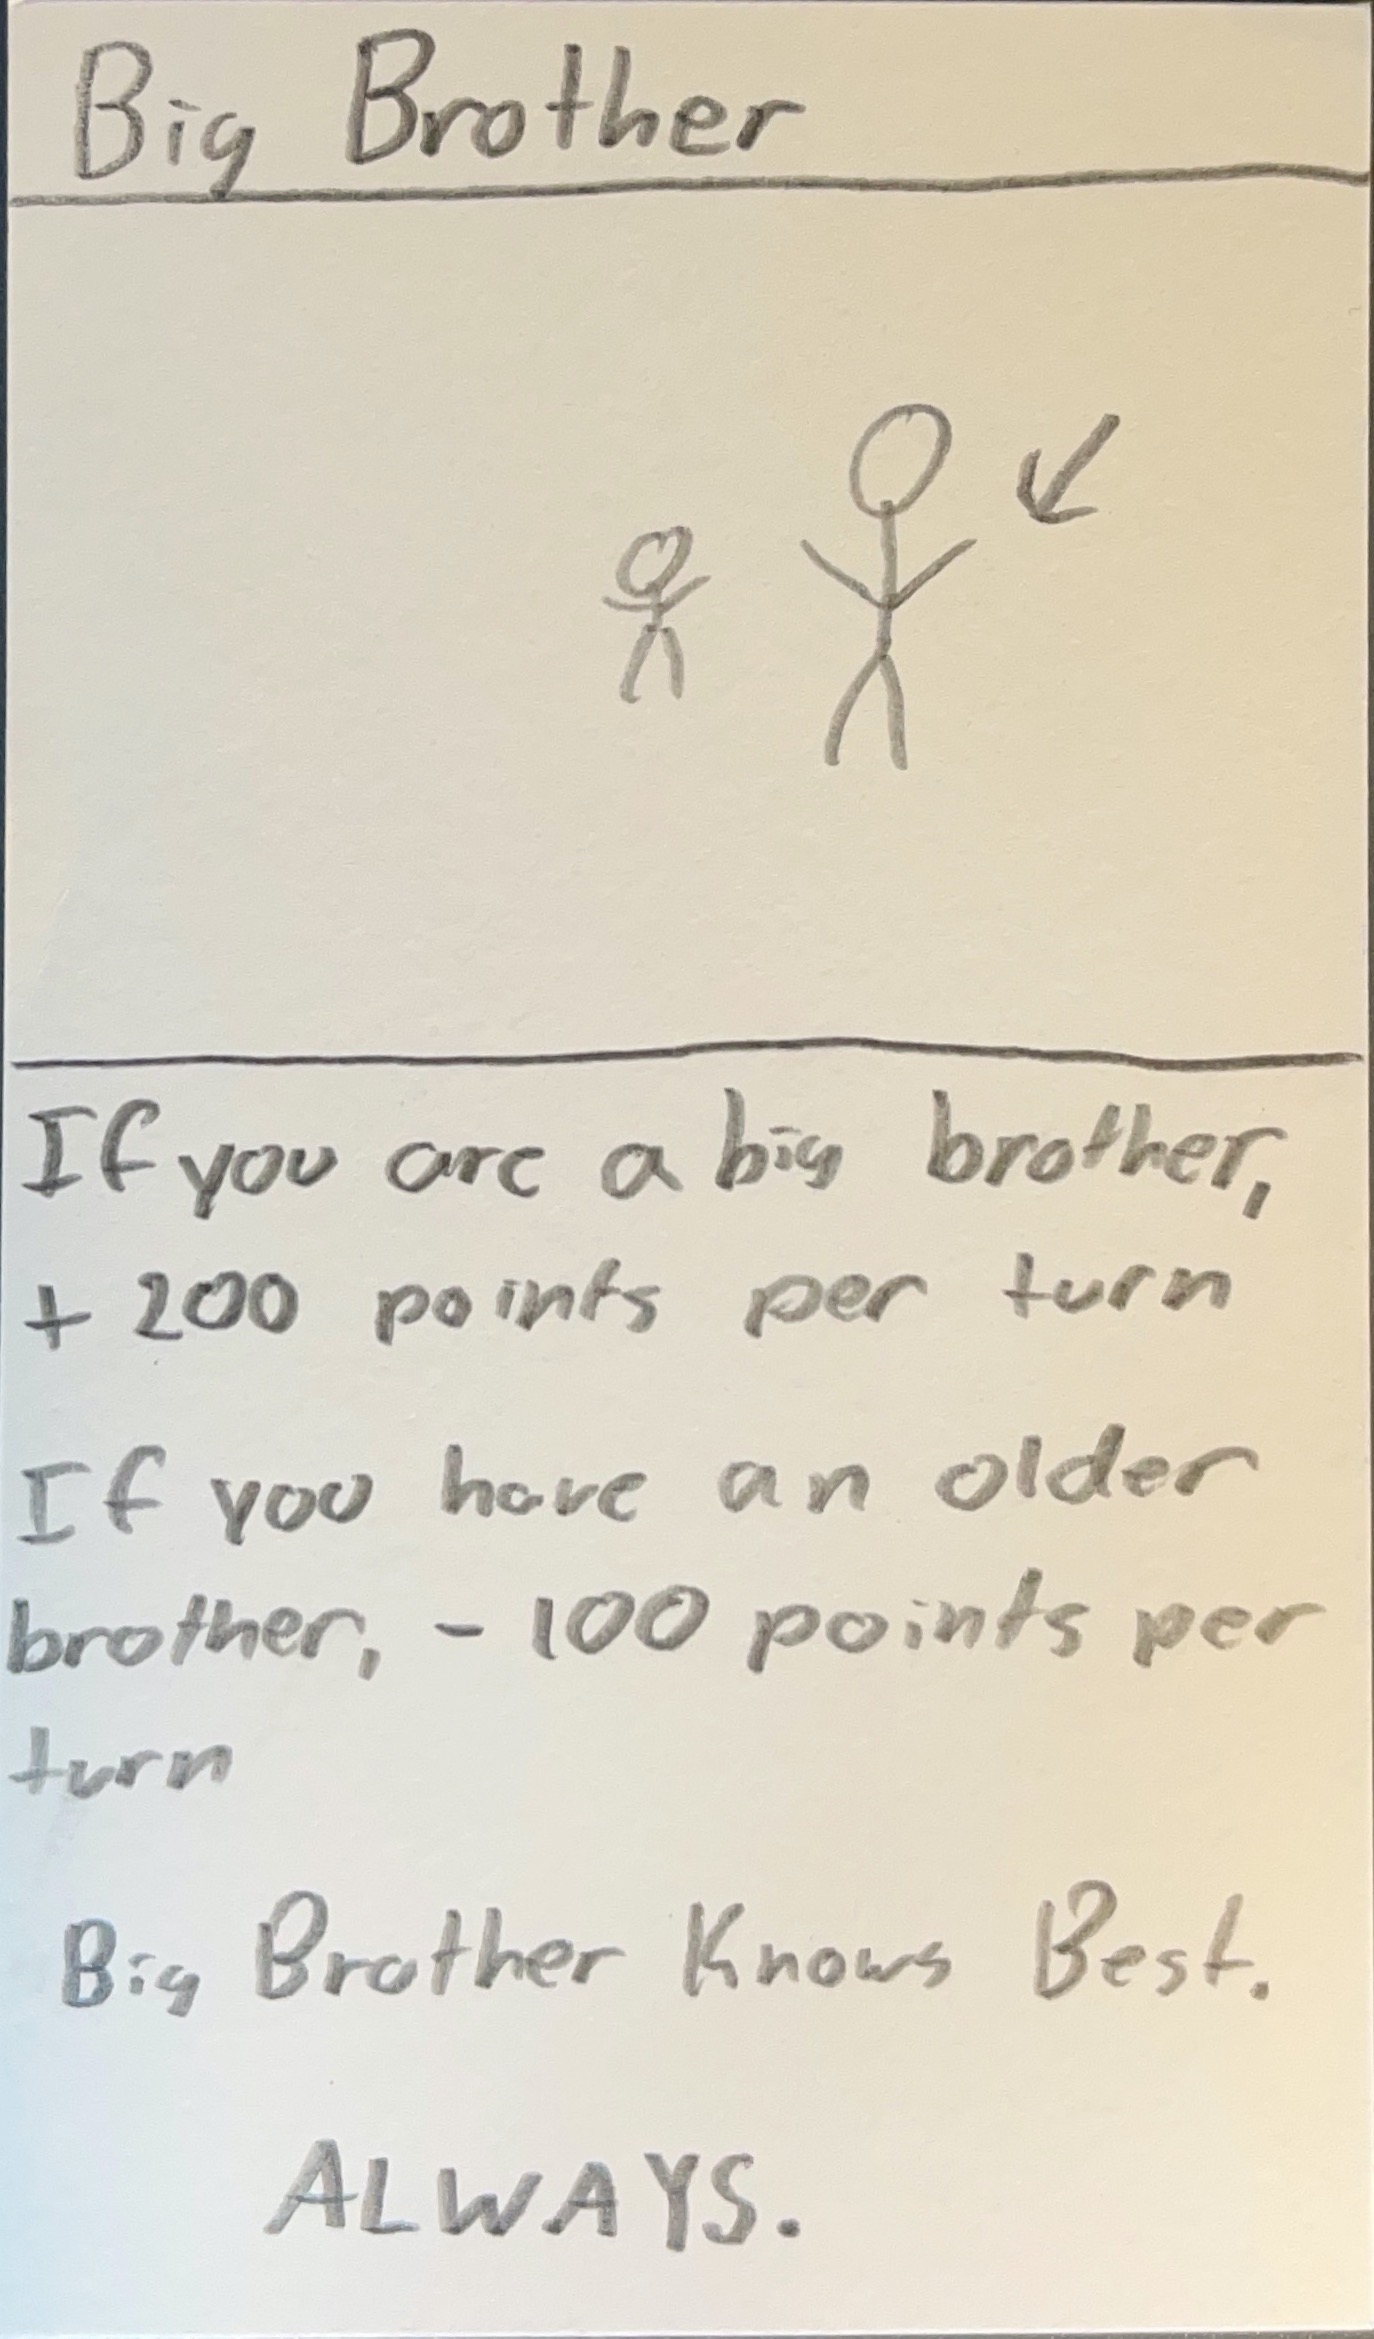 Big Brother
If you are a big brother,
+ 200 points per turn
If you have an older
brother, - 100 points per
turn
Big Brother Knows Best.
ALWAYS.